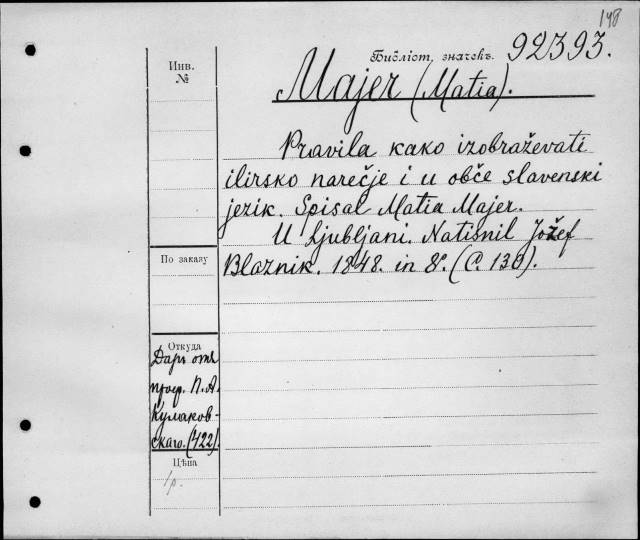 148
Библіот. значекъ. 92393.
Инв.
№
Majer (Matia).
Pravila kako izobraževati
ilirsko narečje i u obče slavenski
jezik. Spisal Matia Majer.
U Ljubljani. Natisnil Jožef
Blaznik. 1848. in 8º. (С. 130).
По заказу
Откуда
Даръ отъ
проф. П. А.
Кулаков-
скаго. (422)
Цѣна
1 р.